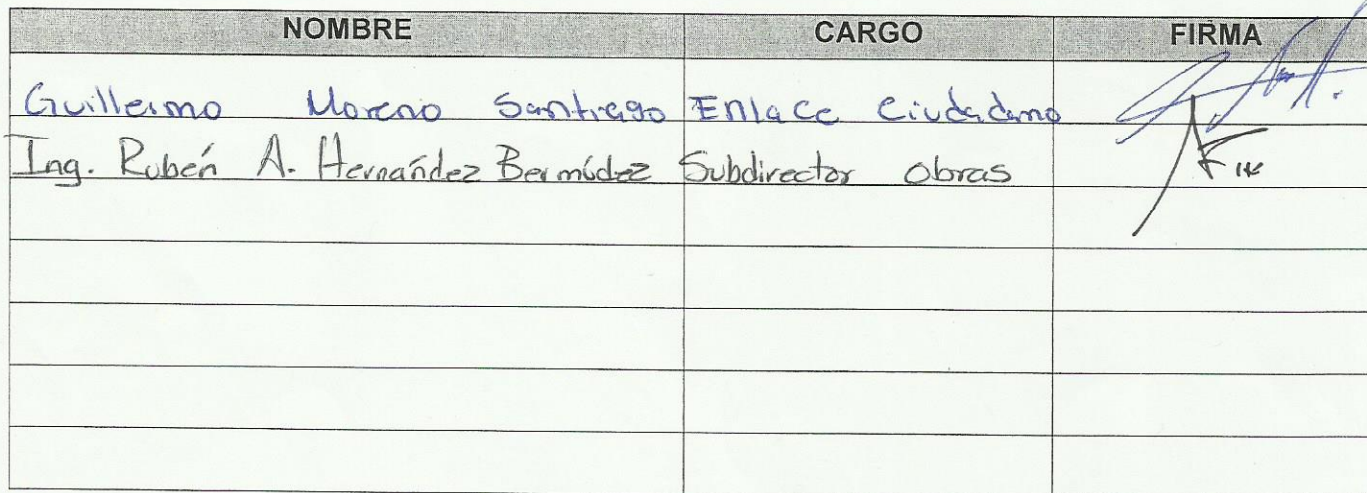 NOMBRE CARGO FIRMA
Guillermo Moreno Santiago Enlace Ciudadano
Ing. Rubén A. Hernández Bermúdez Subdirector obras